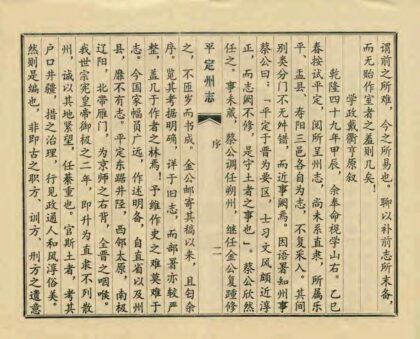 谓前之所难，今之所易也。聊以补前志所未备，
而无贻作室者之羞则几矣！
学政戴衢亨原叙
乾隆四十九年甲辰，余奉命视学山右。乙巳
春按试平定，阅所呈州志，尚未系直隶，所属乐
平、盂县、寿阳三邑各自为志，不复采入。其间
别类分门不无舛错，而近事阙焉。因语署知州事
蔡公曰：「平定于晋为要区，士习文风颇近淳
正，而志阙不修，是守土者之事也」。蔡公欣然
任之。事未蒇，蔡公调任朔州，继任金公复踵修
平定州志
序
二
之，不匝岁而书成。金公邮寄其稿以来，且匄余
序。览其考据明确，详于旧志，而部署亦较严
整，盖几于作者之林焉！予维作史之难莫难于
志。今国家幅员广远，作述明备，自直省以及州
县，靡不有志。平定东踞井陉，西邻太原，南极
辽阳，北带雁门，为京师之右背，全晋之咽喉。
我世宗宪皇帝御极之二年，即升为直隶不列散
州，诚以其地紧望，任綦重也。官斯土者，考其
户口井疆，措之治理，行见政通人和风淳俗美。
然则是编也，非即古之职方、训方，刑方之遗意